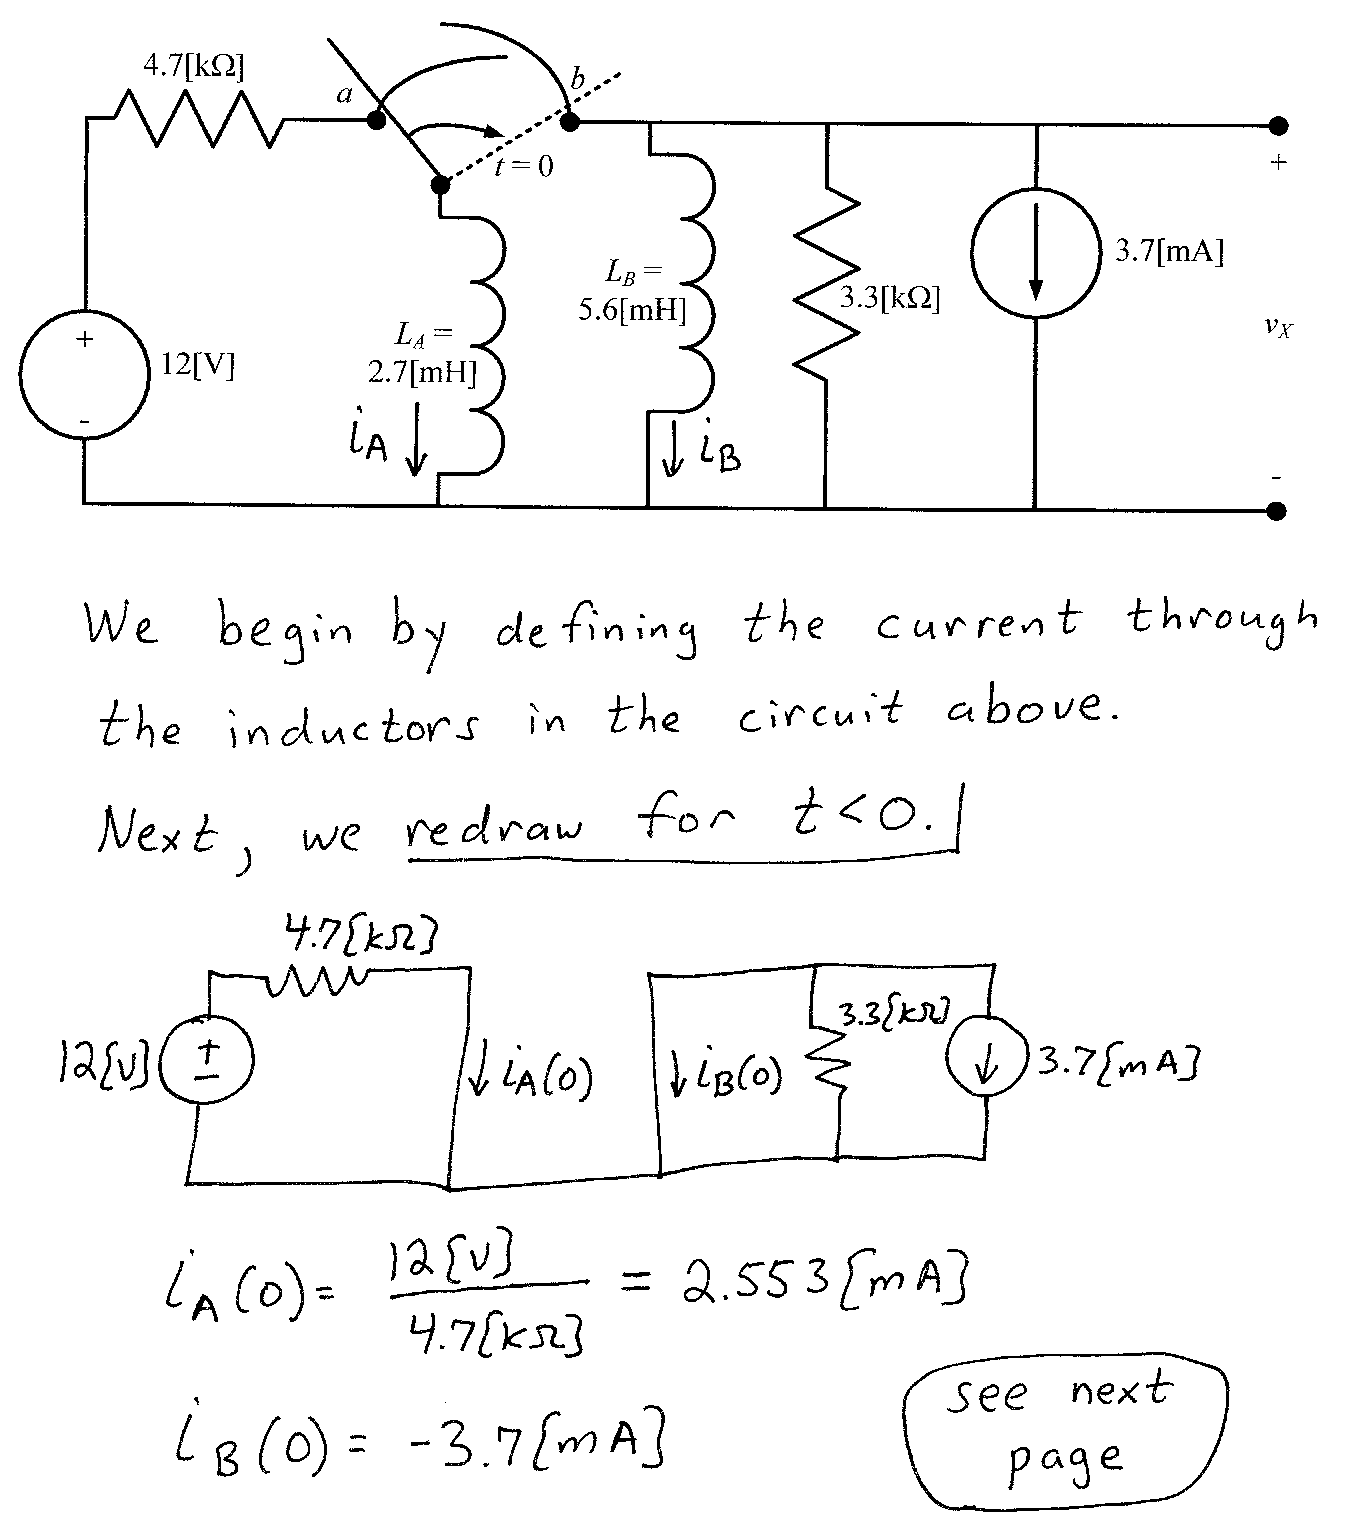 4.7[kΩ]
a
b
t = 0
+
12[V]
-
L_A =
2.7[mH]
i_A
L_B =
5.6[mH]
i_B
3.3[kΩ]
3.7[mA]
+
v_X
-
We begin by defining the current through
the inductors in the circuit above.
Next, we redraw for t<0.
4.7[kΩ]
12[V]
+
-
i_A(0)
i_B(0)
3.3[kΩ]
3.7[mA]
i_A(0) = 12[V] / 4.7[kΩ] = 2.553[mA]
i_B(0) = -3.7[mA]
see next
page